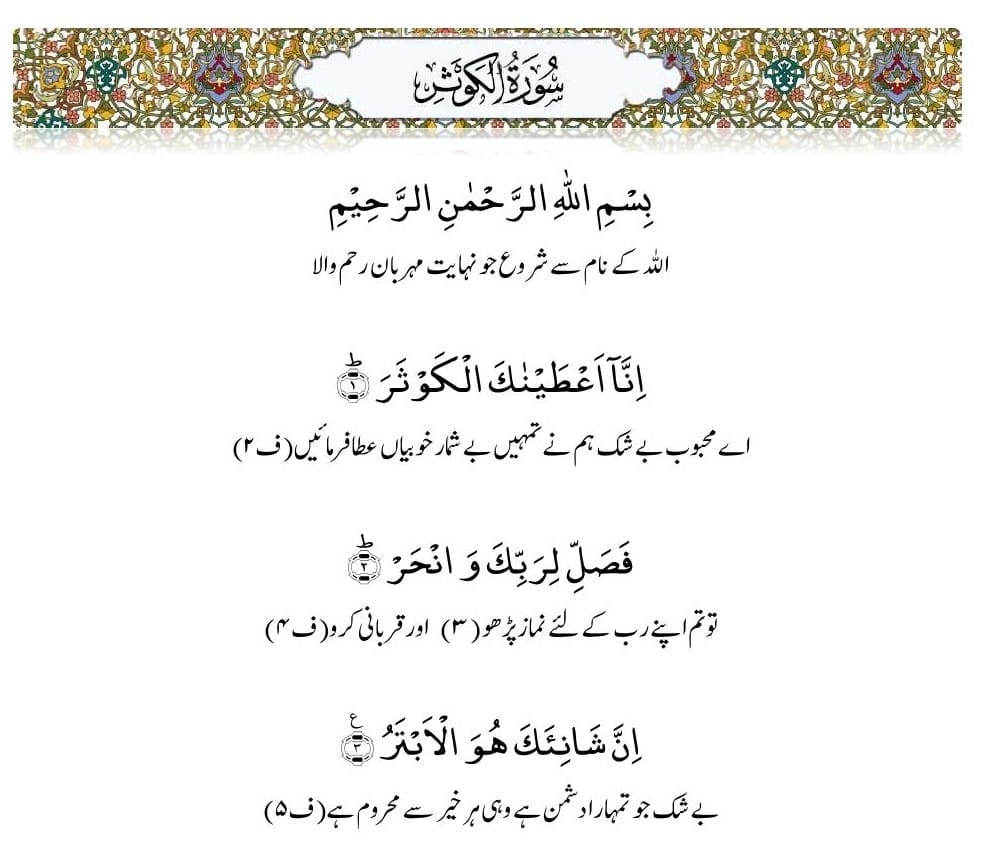 سُوْرَةُ الْكَوْثَرِ
بِسْمِ اللّٰهِ الرَّحْمٰنِ الرَّحِیْمِ
اللہ کے نام سے شروع جو نہایت مہربان رحم والا
اِنَّاۤ اَعْطَیْنٰكَ الْكَوْثَرَؕ۝۱
اے محبوب بے شک ہم نے تمہیں بے شمار خوبیاں عطا فرمائیں (ف۲)
فَصَلِّ لِرَبِّكَ وَ انْحَرْؕ۝۲
تو تم اپنے رب کے لئے نماز پڑھو (۳) اور قربانی کرو (ف۴)
اِنَّ شَانِئَكَ هُوَ الْاَبْتَرُ۠۝۳
بے شک جو تمہارا دشمن ہے وہی ہر خیر سے محروم ہے (ف۵)